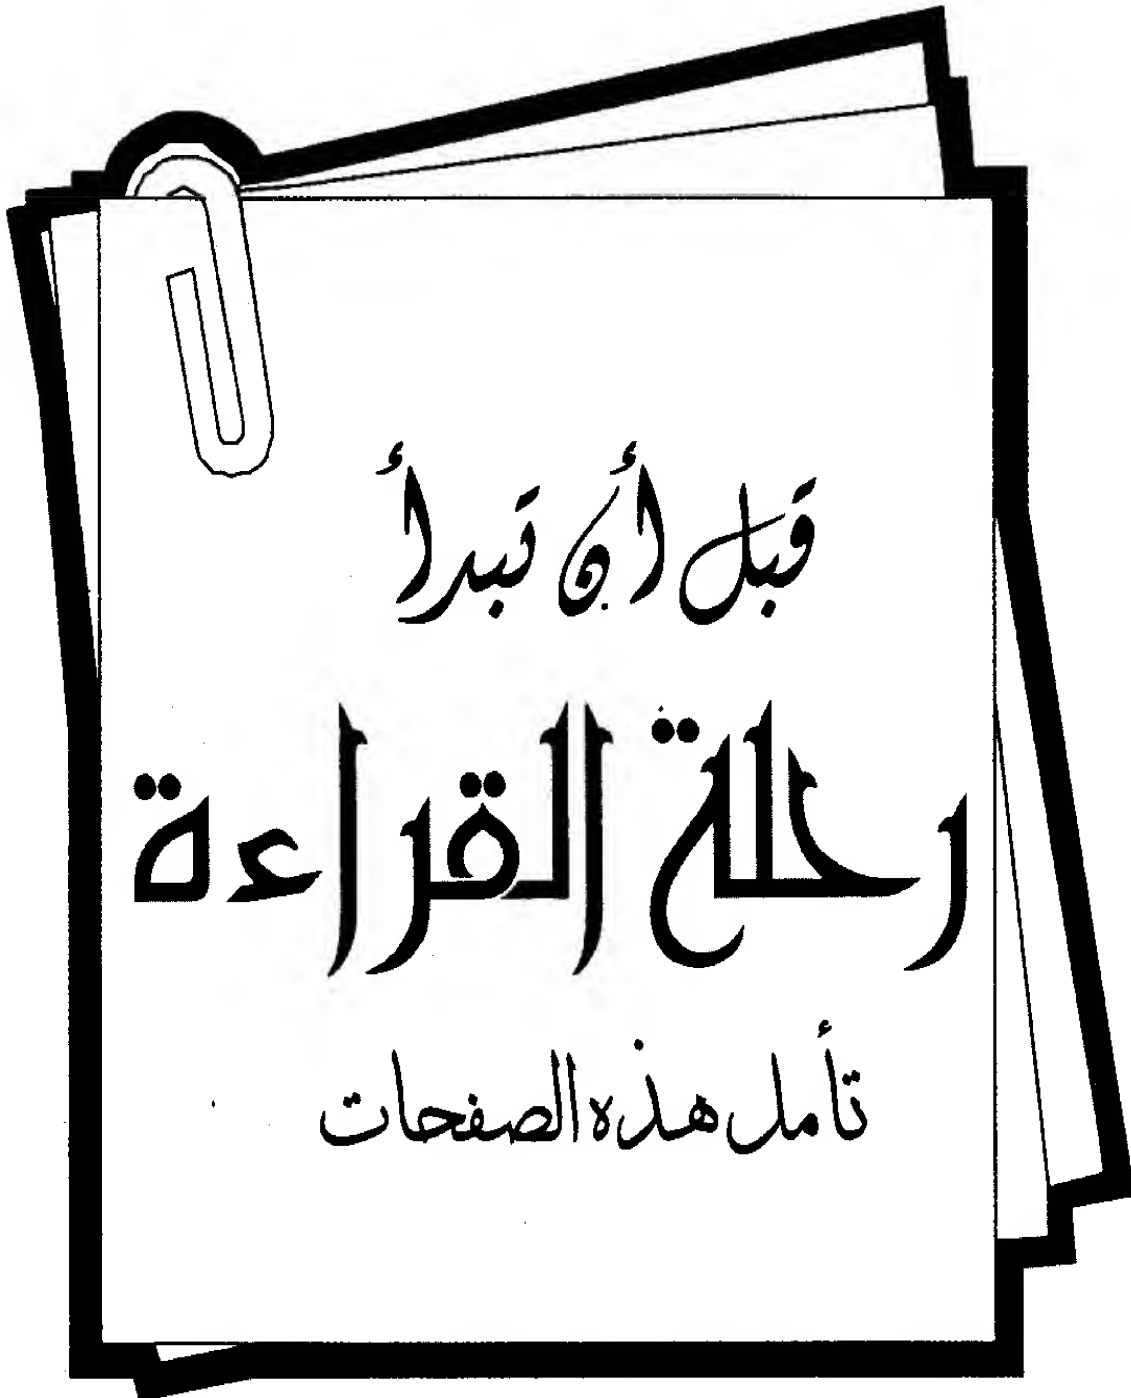 قبل أن تبدأ
رحلة القراءة
تأمل هذه الصفحات